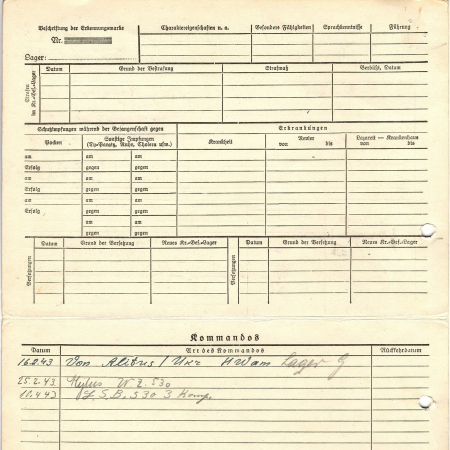 Beschriftung der Erkennungsmarke
Nr.
Lager:
Charaktereigenschaften u. a.
Besondere Fähigkeiten
Sprachkenntnisse
Führung
Strafen im Kr.-Gef.-Lager
Datum
Grund der Bestrafung
Strafmaß
Verbüßt, Datum
Schutzimpfungen während der Gefangenschaft gegen
Erkrankungen
Pocken
Sonstige Impfungen
(Ty.-Paraty., Ruhr, Cholera usw.)
Krankheit
Revier
von bis
Lazarett — Krankenhaus
von bis
am am am
Erfolg gegen gegen
am am am
Erfolg gegen gegen
am am am
Erfolg gegen gegen
am am
gegen gegen
Versetzungen
Datum
Grund der Versetzung
Neues Kr.-Gef.-Lager
Versetzungen
Datum
Grund der Versetzung
Neues Kr.-Gef.-Lager
Kommandos
Datum
Art des Kommandos
Rückkehrdatum
16.2.43 Von Lager
25.2.43 530
11.4.43 S. B. 530 3 Komp.